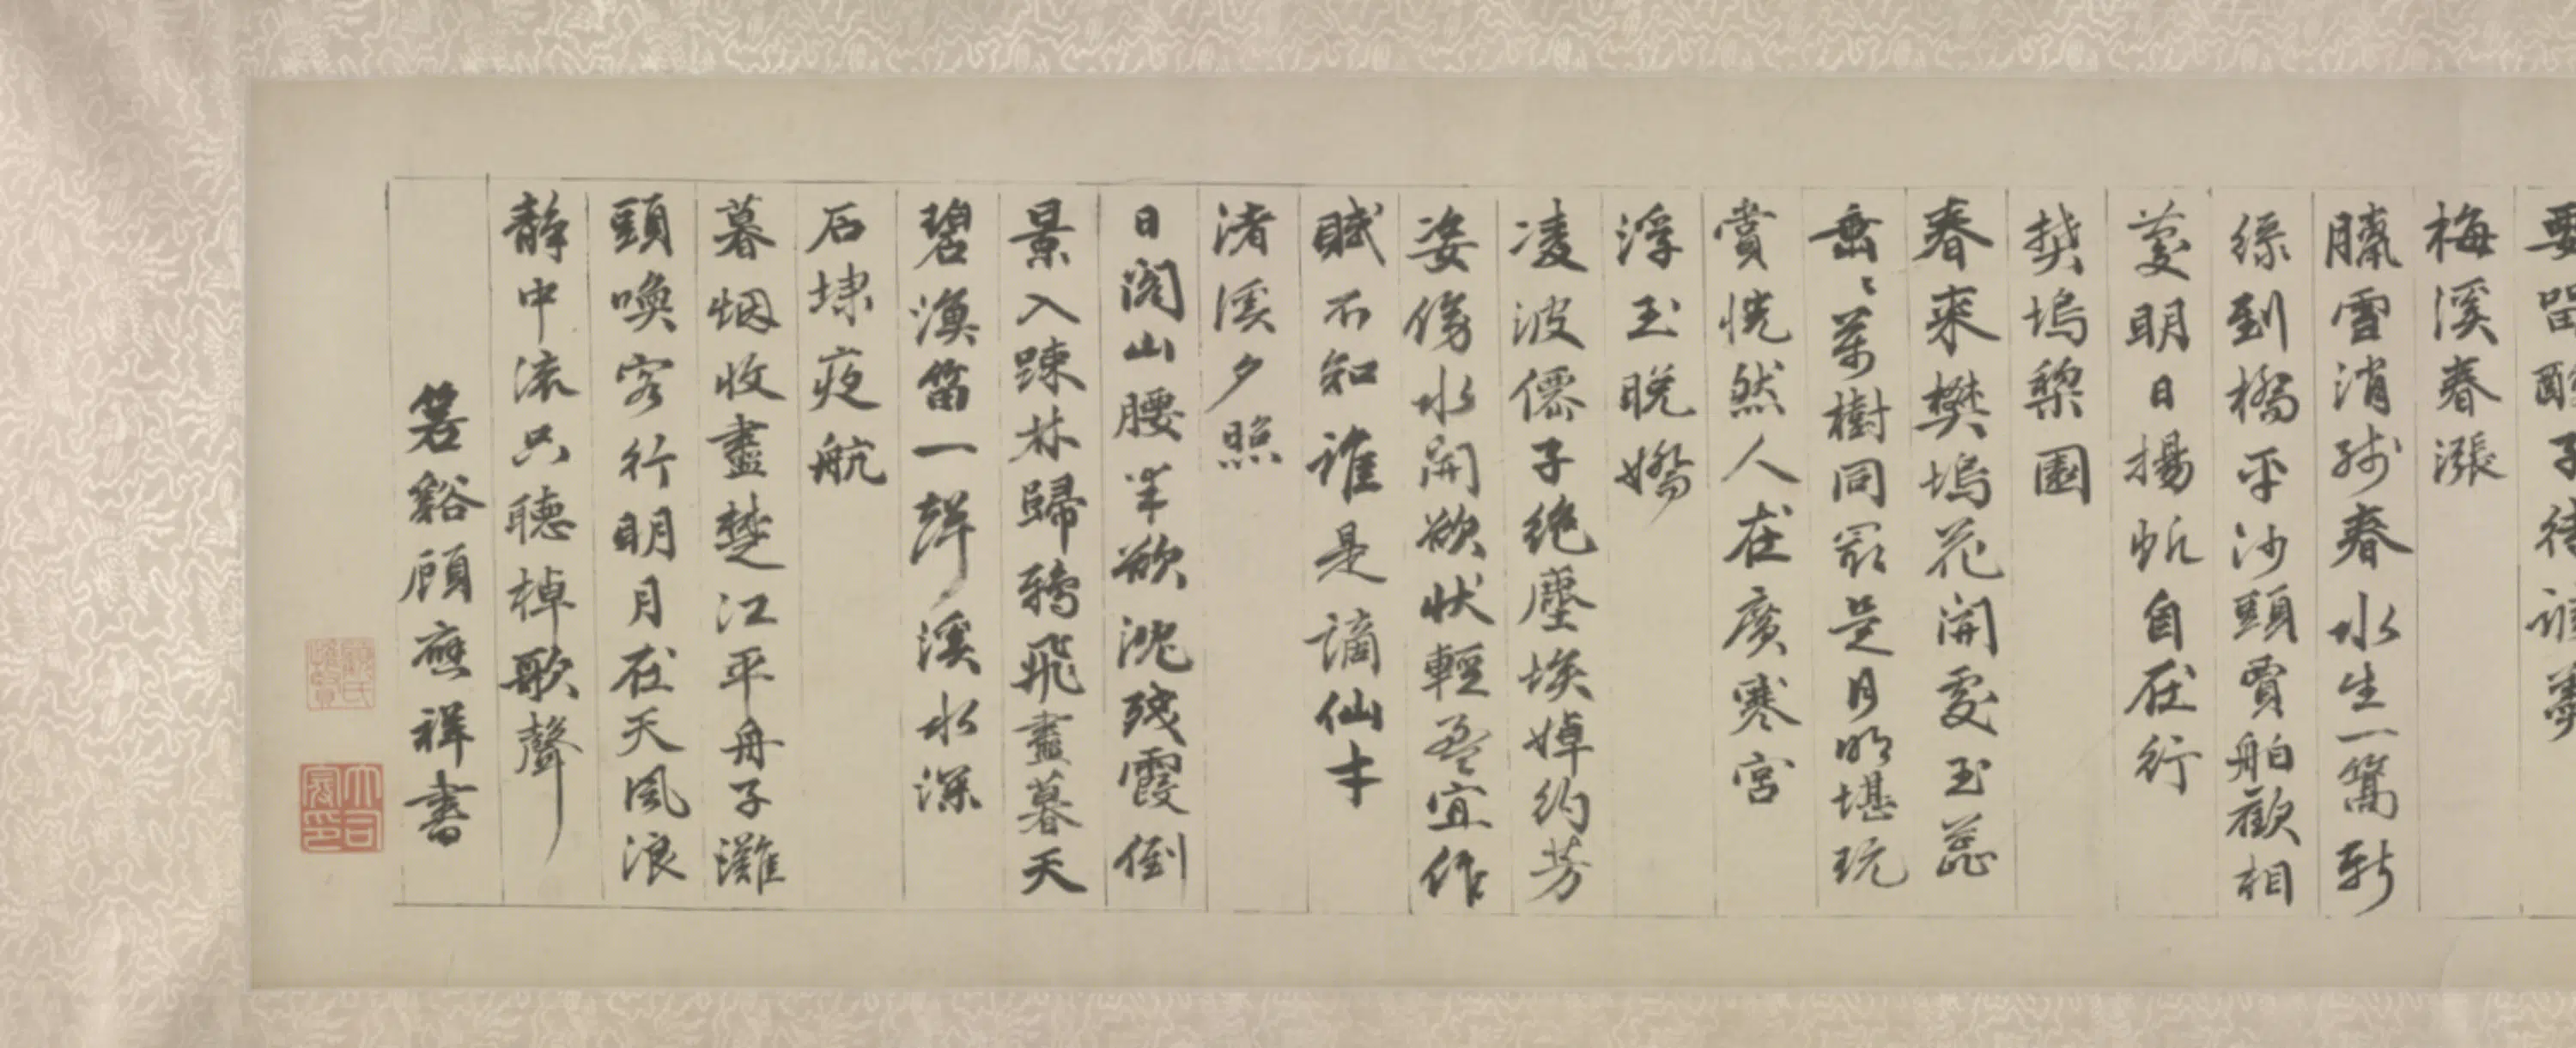 要
梅溪春漲
臘雪消殘春水生一篙新
綠到橋平沙頭賈舶歡相
慶明日揚帆自在行
樊塢梨園
春來樊塢花開處玉蕊
垂〻萬樹同最是月明堪玩
賞恍然人在廣寒宮
浮玉晚嬌
凌波僊子絕塵埃婥約芳
姿傍水開欲狀輕盈宜作
賦不知誰是謫仙才
渚溪夕照
日閣山腰半欲沈殘霞倒
景入踈林歸鴉飛盡暮天
碧漁笛一聲溪水深
石埭夜航
暮烟收盡楚江平舟子灘
頭喚客行明月在天風浪
靜中流只聽棹歌聲
箬谿顧應祥書
顧氏惟賢
大司寇印